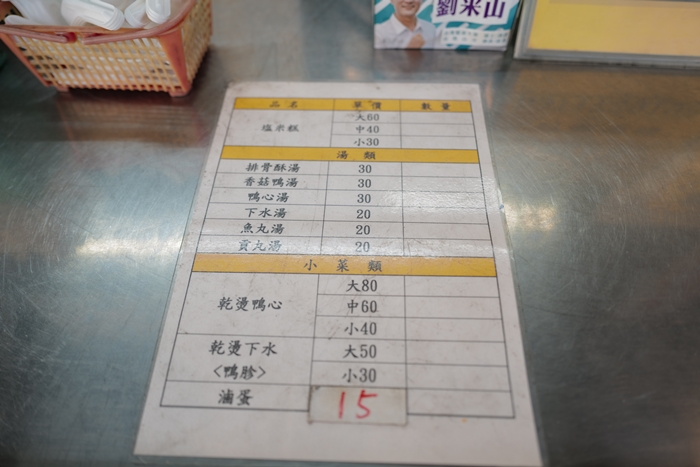 劉米山
品名 單價 數量
塩米糕 大60
中40
小30
湯類
排骨酥湯 30
香菇鴨湯 30
鴨心湯 30
下水湯 20
魚丸湯 20
貢丸湯 20
小菜類
乾燙鴨心 大80
中60
小40
乾燙下水 大50
〈鴨胗〉 小30
滷蛋 15